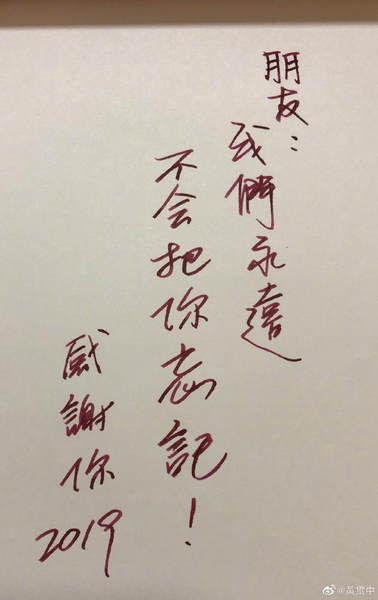 朋友：
我們永遠
不会把你忘記！
感謝你
2019
@黃貫中